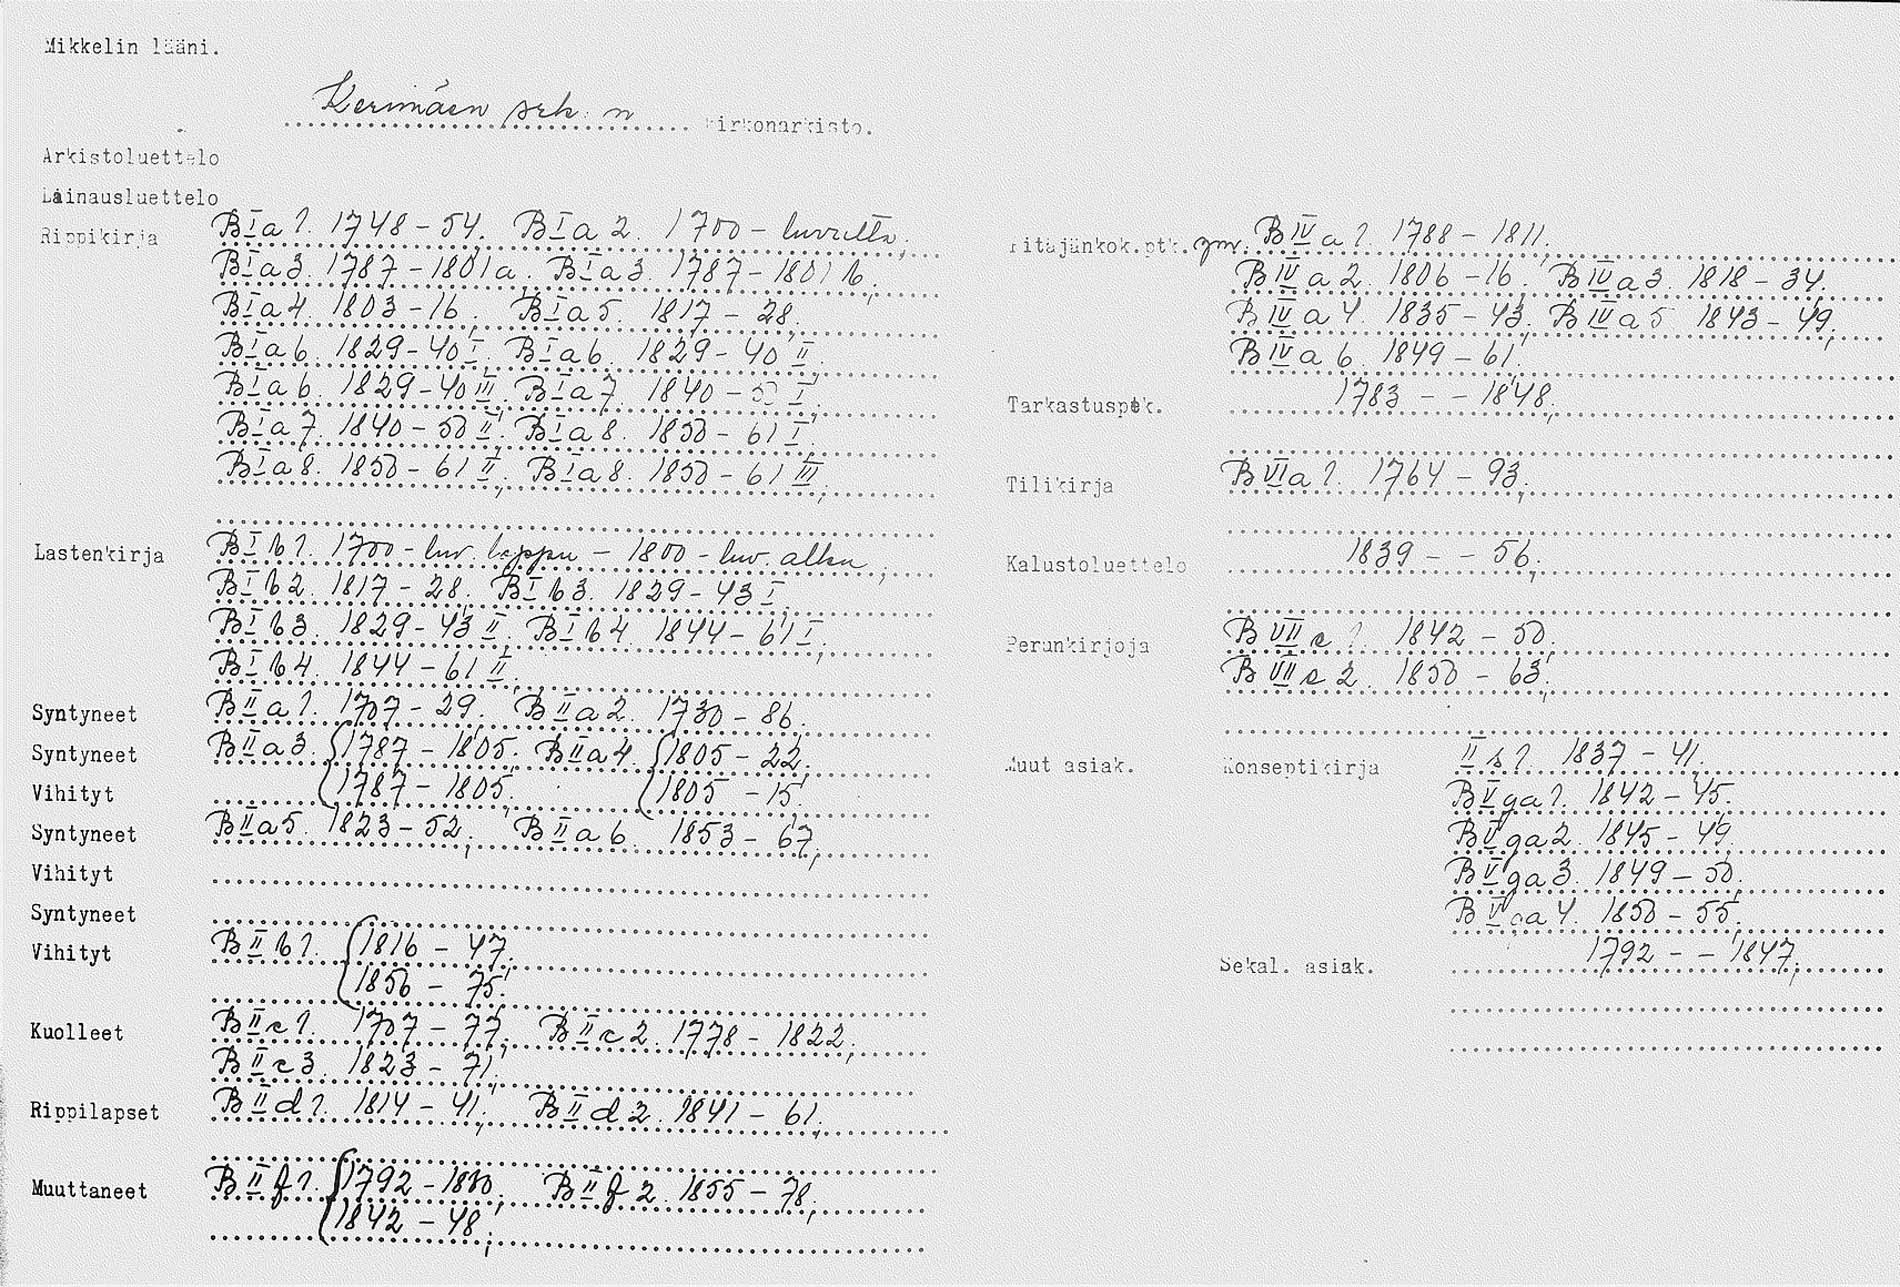 Mikkelin lääni.
Kerimäen srk:n kirkonarkisto.
Arkistoluettelo
Lainausluettelo
Rippikirja B I a 1. 1748-54. B I a 2. 1700-luvulta;
B I a 3. 1787-1801 a. B I a 3. 1787-1801 b;
B I a 4. 1803-16. B I a 5. 1817-28.
B I a 6. 1829-40 I. B I a 6. 1829-40 II.
B I a 6. 1829-40 III. B I a 7. 1840-50 I.
B I a 7. 1840-50 II. B I a 8. 1850-61 I.
B I a 8. 1850-61 II; B I a 8. 1850-61 III;
Lastenkirja B I b 1. 1700-luv. loppu - 1800-luv. alku;
B I b 2. 1817-28. B I b 3. 1829-43 I.
B I b 3. 1829-43 II. B I b 4. 1844-61 I;
B I b 4. 1844-61 II.
Syntyneet B II a 1. 1707-29. B II a 2. 1730-86.
Syntyneet B II a 3. {1787-1805. B II a 4. {1805-22;
Vihityt {1787-1805. {1805-15.
Syntyneet B II a 5. 1823-52; B II a 6. 1853-67;
Vihityt
Syntyneet
Vihityt B II b 1. {1816-47.
{1856-75.
Kuolleet B II c 1. 1707-77; B II c 2. 1778-1822;
B II c 3. 1823-71;
Rippilapset B II d 1. 1814-41; B II d 2. 1841-61;
Muuttaneet B II f 1. {1792- B II f 2. 1855-78;
{1842-48;
Pitäjänkok.ptk. ym. B IV a 1. 1788-1811.
B IV a 2. 1806-16. B IV a 3. 1818-34.
B IV a 4. 1835-43; B IV a 5 1843-49;
B IV a 6 1849-61.
Tarkastusptk. 1783 - - 1848;
Tilikirja B VI a 1. 1764-93;
Kalustoluettelo 1839 - - 56;
Perunkirjoja B VII c 1. 1842-50.
B VII c 2. 1850-63;
Muut asiak. Konseptikirja II s 1. 1837-41.
B V ga 1. 1842-45.
B V ga 2. 1845-49.
B V ga 3. 1849-50.
B V ga 4. 1850-55.
Sekal. asiak. 1792 - - 1847;